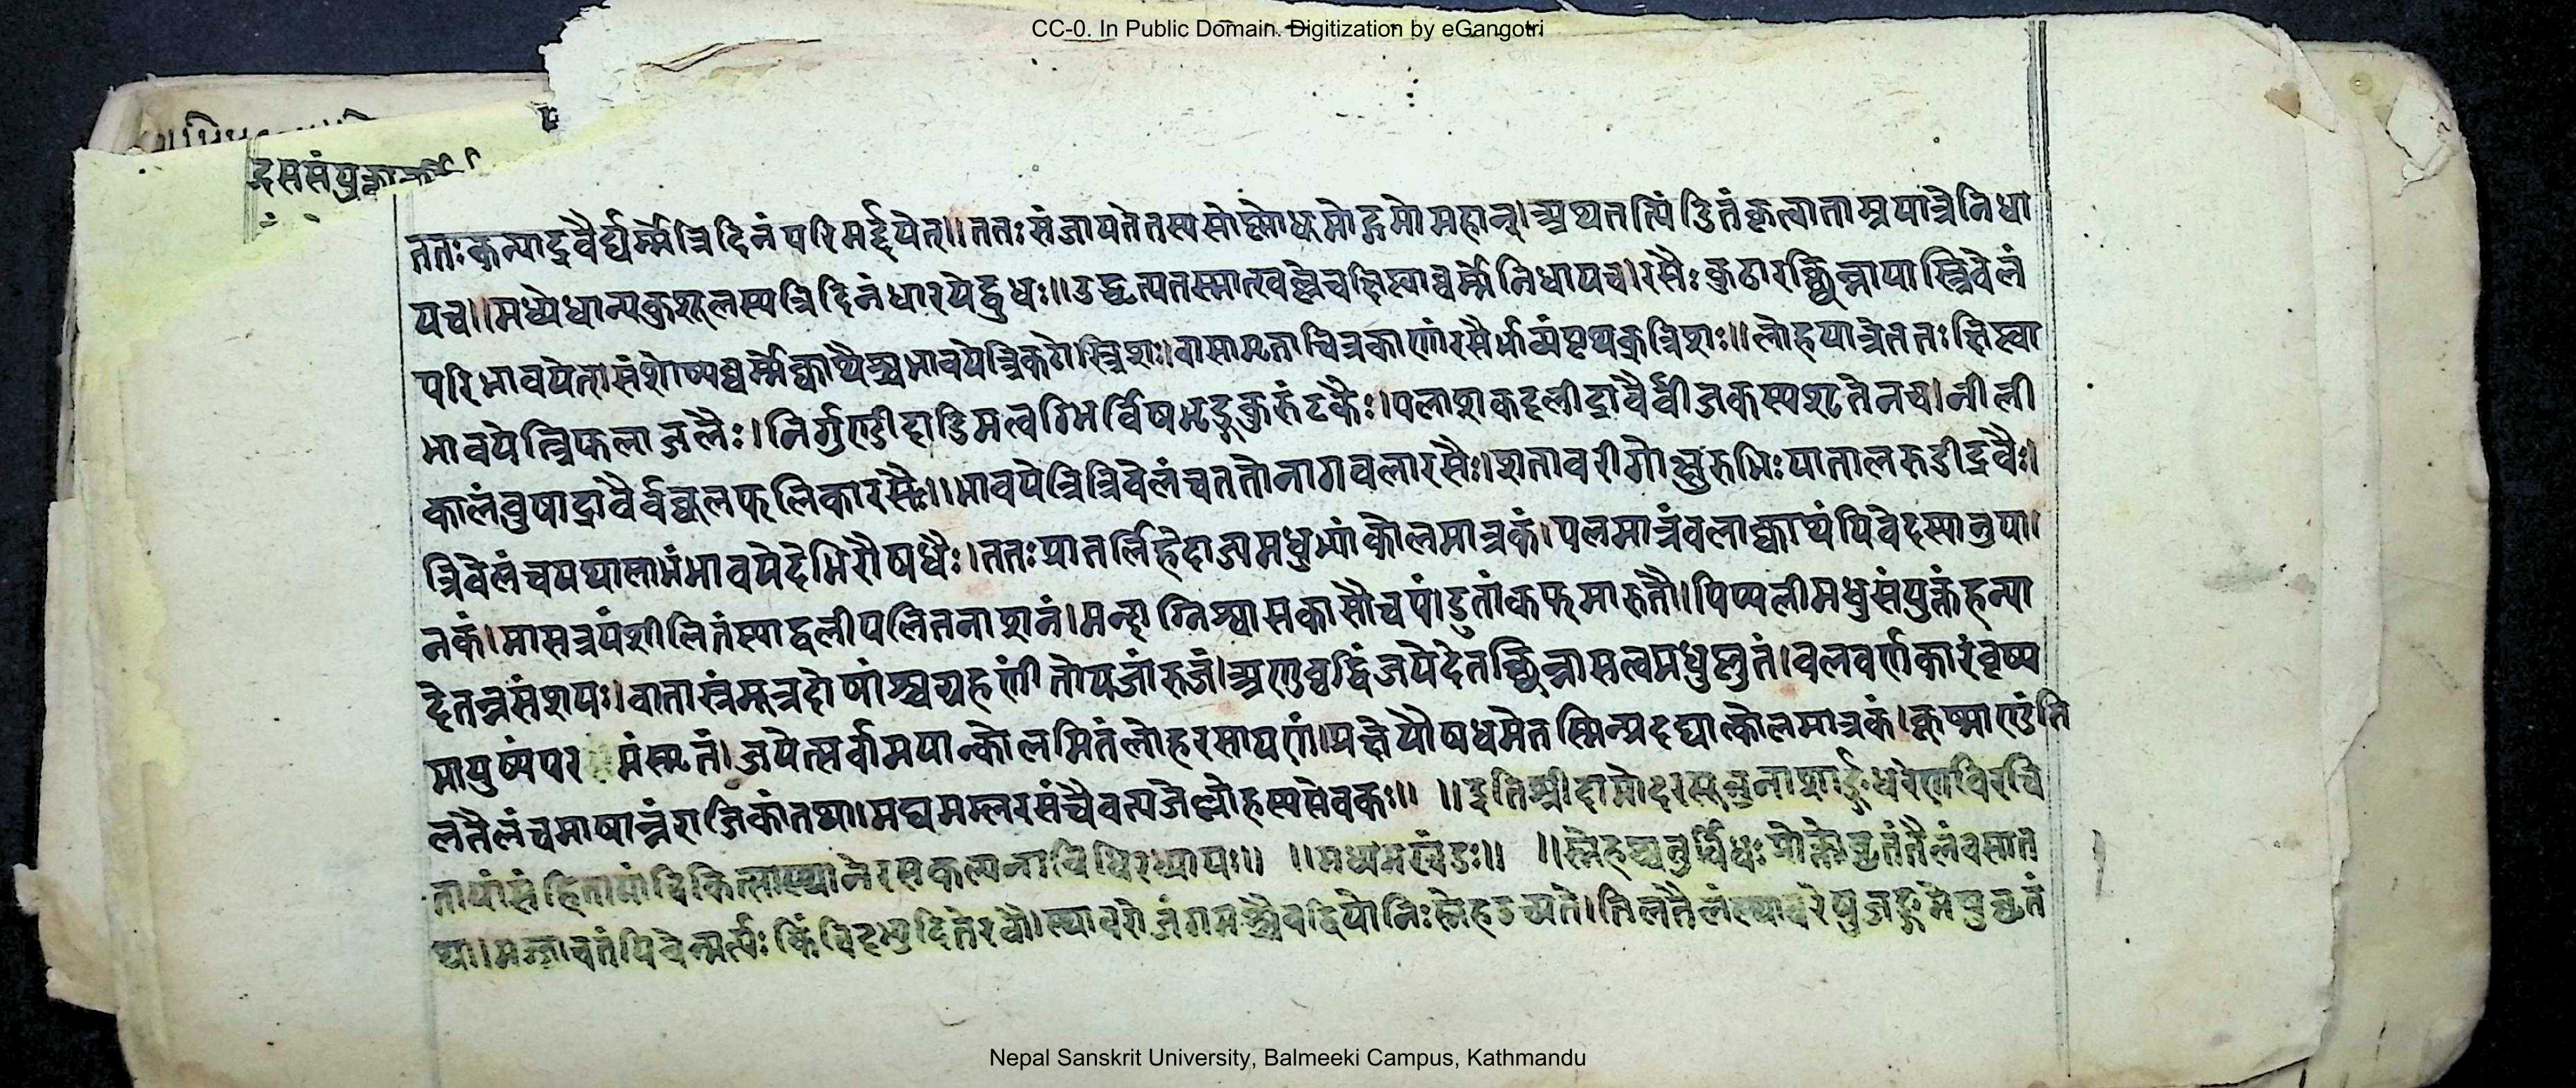 CC-0. In Public Domain. Digitization by eGangotri
दससंयु
ततःकन्याद्रवैर्घर्म्मेत्रिदिनंपरिमर्द्दयेत्॥ततःसंजायतेतस्यसोष्मोधूमोद्गमोमहान्।अथतत्पिंडितंकृत्वाताम्रपात्रेनिधा
यच॥मध्येधान्यकुशूलस्यत्रिदिनंधारयेद्बुधः॥उद्धृत्यतस्मात्खल्वेचक्षिप्त्वाघर्म्मेनिधायच।रसैःकुठारछिन्नायास्त्रिवेलं
परिभावयेत्।संशोष्यघर्म्मेक्वाथैश्चभावयेत्त्रिकटोस्त्रिशः।वासामृताचित्रकाणांरसैर्भाव्यंपृथक्त्रिशः॥लोहपात्रेततःक्षिप्त्वा
भावयेत्त्रिफलाजलैः।निर्गुण्डीदाडिमत्वग्भिर्विषभृङ्गकुरुंटकैः।पलाशकदलीद्रावैर्बीजकस्यशृतेनच।नीली
कालंबुषाद्रावैर्बब्बूलफलिकारसैः॥भावयेत्त्रित्रिवेलंचततोनागवलारसैः।शतावरीगोक्षुरुभिःपातालरुडीद्रवैः।
त्रिवेलंचयथालाभंभावयेदेभिरौषधैः।ततःप्रातर्लिहेदाज्यमधुभ्यांकोलमात्रकं।पलमात्रंवलाक्वाथंपिवेदस्यानुपा।
नकं।मासत्रयंशीलितंस्याद्वलीपलितनाशनं।मन्दाग्निश्वासकासौचपंडुतांकफमारुतौ।पिप्पलीमधुसंयुक्तंहन्या
देतन्नसंशयः।वातास्रंमूत्रदोषांश्चग्रहणींतोयजांरुजं।अण्डवृद्धिंजयेदेतछिन्नासत्वमधुप्लुतं।वलवर्णकारंवृष्य
मायुष्यंपर मंस्मृतं।जयेत्सर्वामयान्कोलमितंलोहरसायणं।प्रक्षेपौषधमेतस्मिन्प्रदद्यात्कोलमात्रकं।कूष्माण्डंति
लतैलंचमाषान्नंराजिकांतथा।मद्यमम्लरसंचैवत्यजेल्लोहस्यसेवकः॥ ॥इतिश्रीदामोदरसूनुनाशार्ङ्गधरेणविरचि
तायांसंहितायांचिकित्सास्थानेरसकल्पनाविधिरध्यायः॥ ॥मध्यमखंडः॥ ॥स्नेहश्चतुर्विधःप्रोक्तोघृतंतैलंवसात
था।मज्जाचतंपिवेन्मर्त्यःकिंचिदभ्युदितेरवौ।स्थावरोजंगमश्चैवद्वियोनिःस्नेहउच्यते।तिलतैलंस्थावरेषुजङ्गमेषुघृतं
Nepal Sanskrit University, Balmeeki Campus, Kathmandu